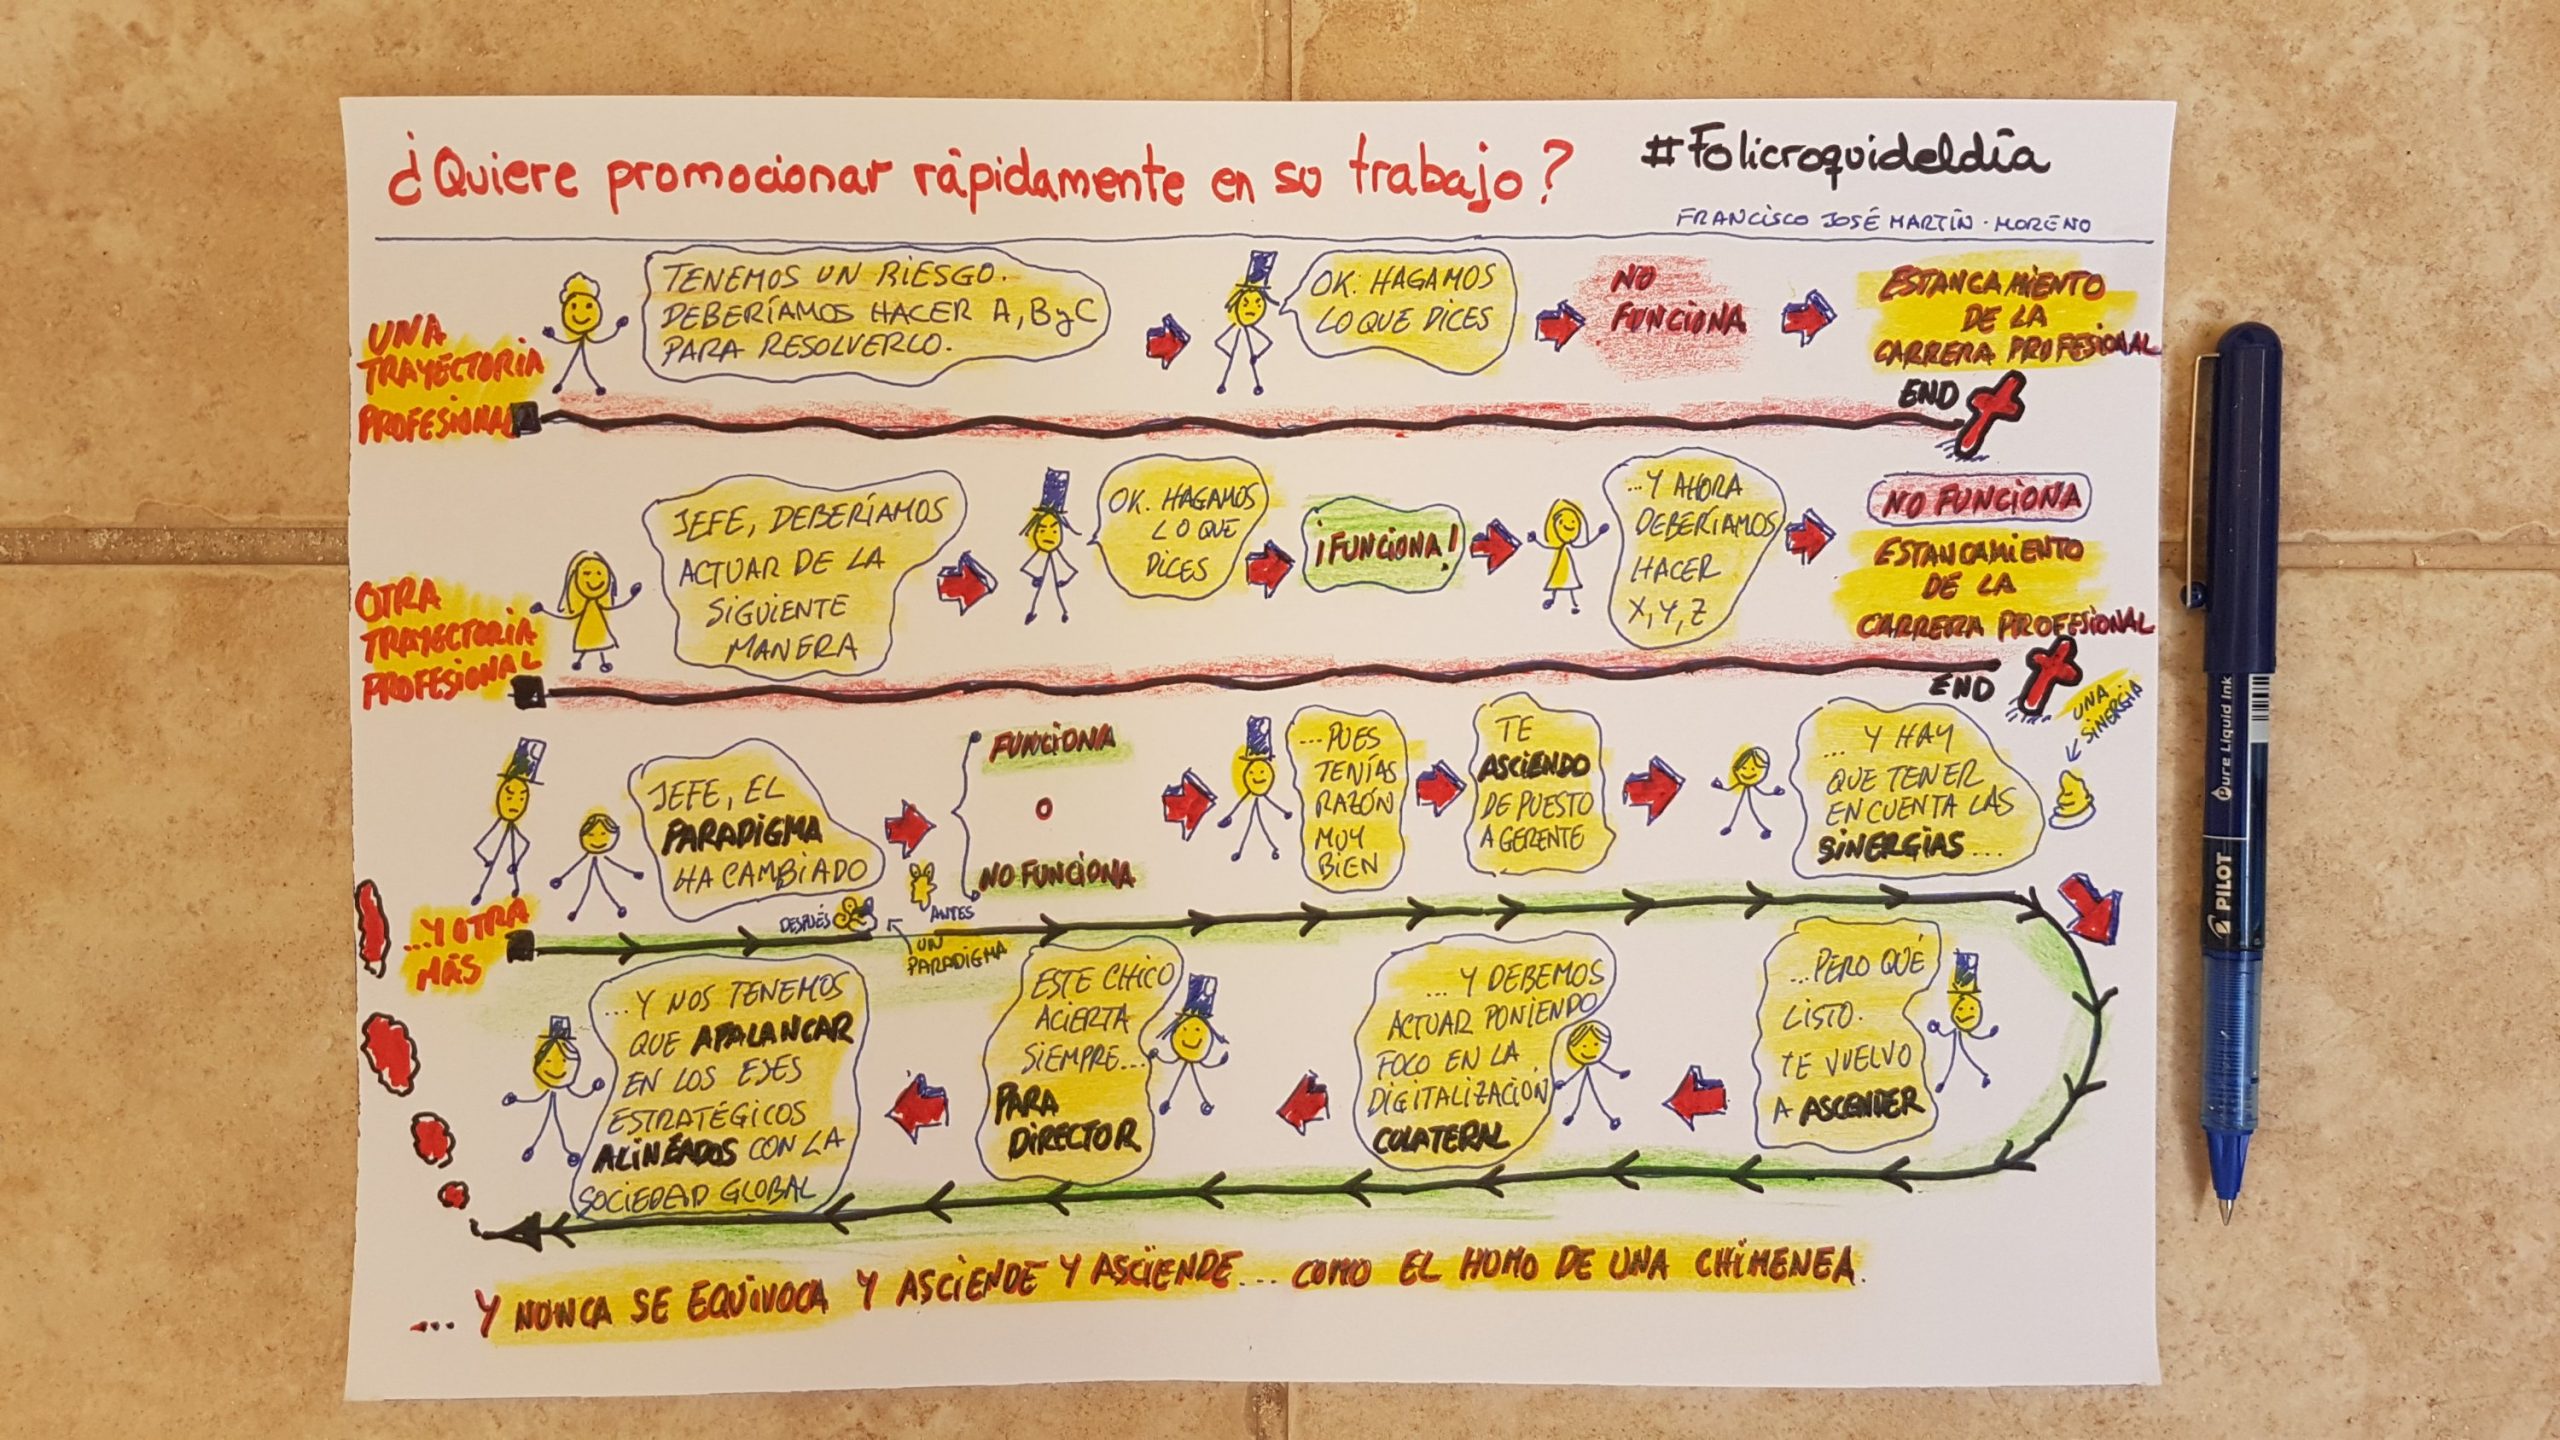 ¿Quiere promocionar rápidamente en su trabajo?
#Folicroquideldía
FRANCISCO JOSÉ MARTÍN-MORENO
UNA
TRAYECTORIA
PROFESIONAL
TENEMOS UN RIESGO.
DEBERÍAMOS HACER A, B y C
PARA RESOLVERLO.
OK: HAGAMOS
LO QUE DICES
NO
FUNCIONA
ESTANCAMIENTO
DE LA
CARRERA PROFESIONAL
END
OTRA
TRAYECTORIA
PROFESIONAL
JEFE, DEBERÍAMOS
ACTUAR DE LA
SIGUIENTE
MANERA
OK. HAGAMOS
LO QUE
DICES
¡FUNCIONA!
...Y AHORA
DEBERÍAMOS
HACER
X, Y, Z
NO FUNCIONA
ESTANCAMIENTO
DE LA
CARRERA PROFESIONAL
END
...Y OTRA
MÁS
JEFE, EL
PARADIGMA
HA CAMBIADO
DESPUÉS
ANTES
UN
PARADIGMA
FUNCIONA
O
NO FUNCIONA
...PUES
TENÍAS
RAZÓN
MUY
BIEN
TE
ASCIENDO
DE PUESTO
A GERENTE
...Y HAY
QUE TENER
EN CUENTA LAS
SINERGIAS...
UNA
SINERGIA
...PERO QUÉ
LISTO.
TE VUELVO
A ASCENDER
...Y DEBEMOS
ACTUAR PONIENDO
FOCO EN LA
DIGITALIZACIÓN
COLATERAL
ESTE CHICO
ACIERTA
SIEMPRE...
PARA
DIRECTOR
...Y NOS TENEMOS
QUE APALANCAR
EN LOS EJES
ESTRATÉGICOS
ALINEADOS CON LA
SOCIEDAD GLOBAL
... Y NUNCA SE EQUIVOCA Y ASCIENDE Y ASCIENDE... COMO EL HUMO DE UNA CHIMENEA.
PILOT
Pure Liquid Ink